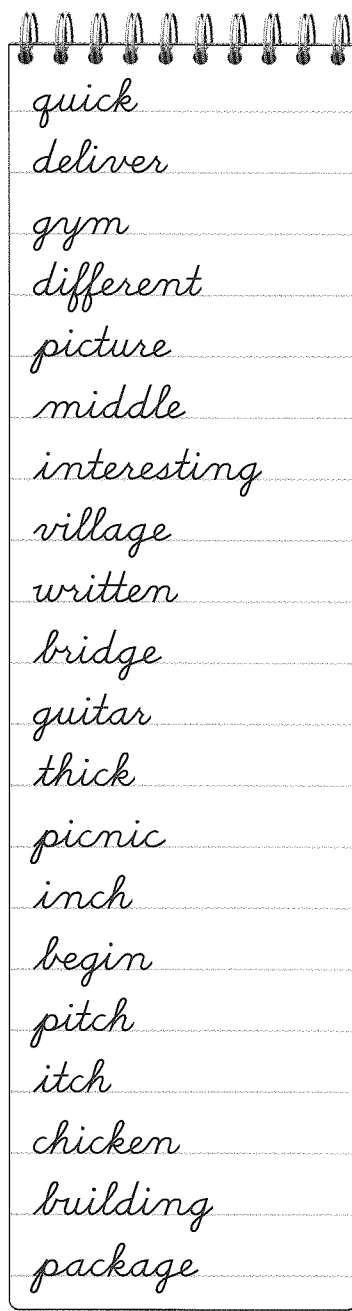 quick
deliver
gym
different
picture
middle
interesting
village
written
bridge
guitar
thick
picnic
inch
begin
pitch
itch
chicken
building
package